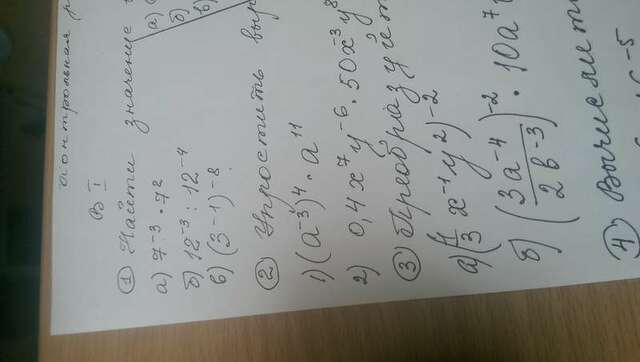 контрольная
В I
① Найти значение
а) 7⁻³ · 7²
б) 12⁻³ : 12⁻⁴
в) (3⁻¹)⁻⁸
② Упростить выр
1) (a⁻³)⁴ · a¹¹
2) 0,4x⁷y⁻⁶ · 50x⁻³y⁸
③ Преобразуйте
а) (1/3 x⁻¹y²)⁻²
б) (3a⁻⁴/2b⁻³)⁻² · 10a⁷
④ Вычислить
а)
б)
в)